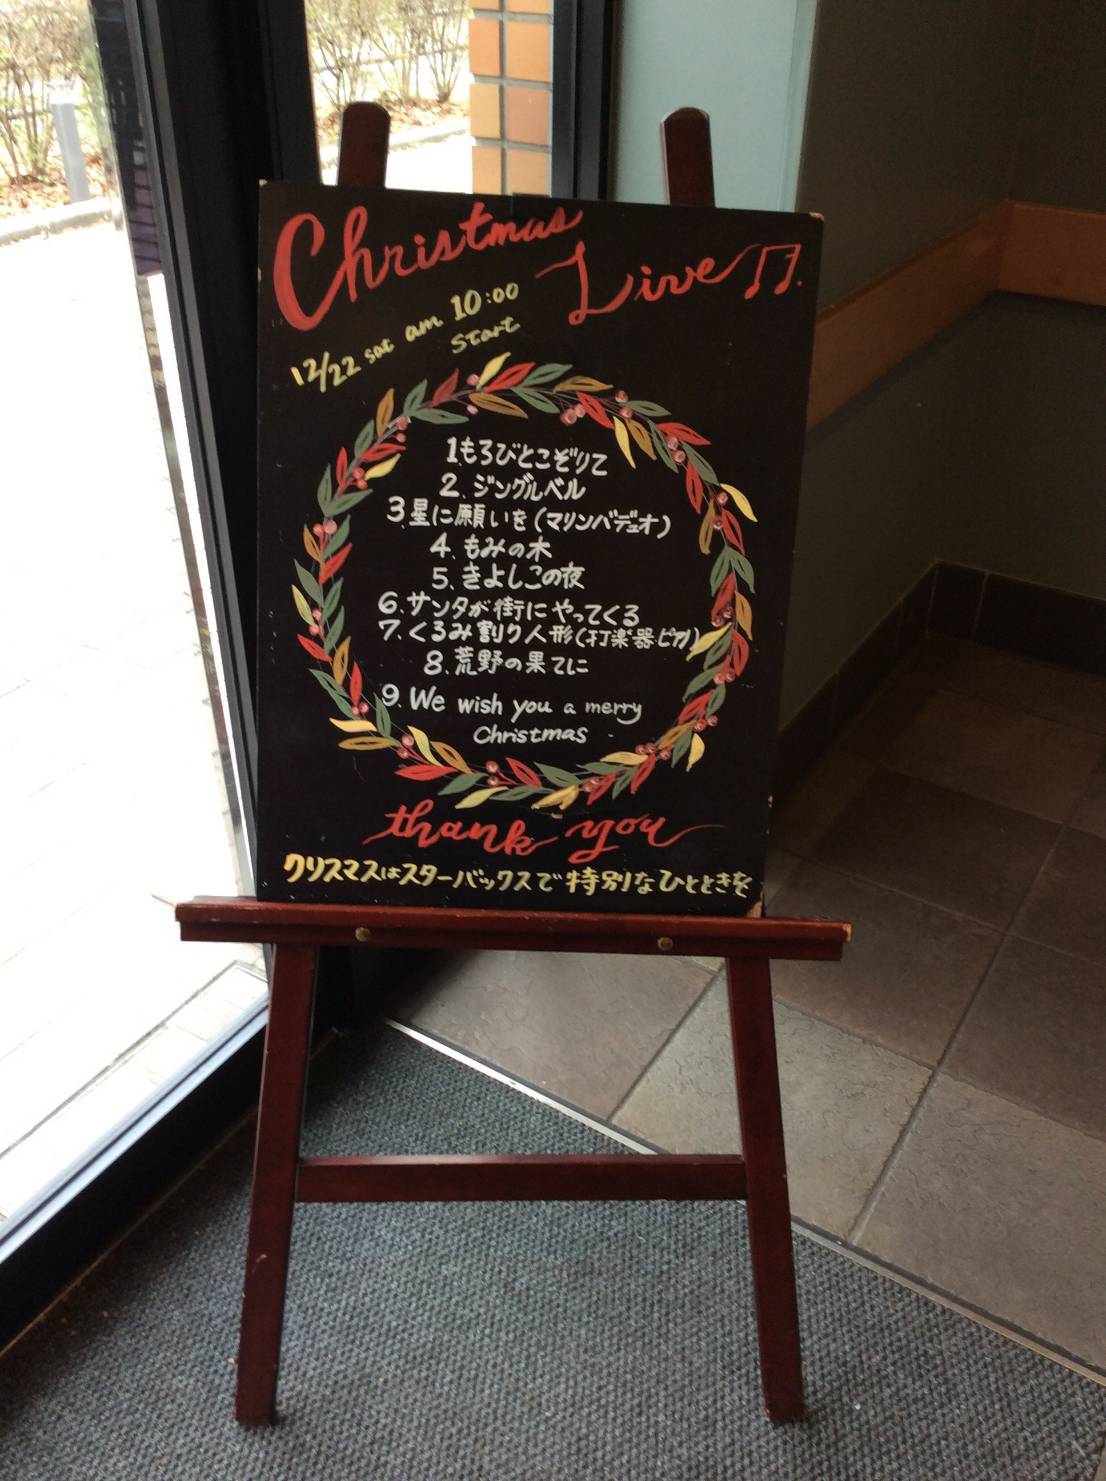 Christmas
Live
12/22 sat am 10:00
start
1.もろびとこぞりて
2.ジングルベル
3.星に願いを(マリンバデュオ)
4.もみの木
5.きよしこの夜
6.サンタが街にやってくる
7.くるみ割り人形(打楽器ピアノ)
8.荒野の果てに
9.We wish you a merry
Christmas
thank you
クリスマスはスターバックスで特別なひとときを